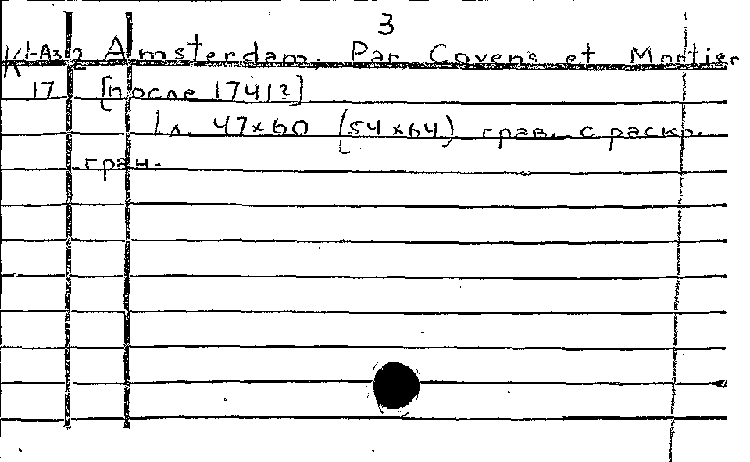 3
К1-Аз 2 Amsterdam. Par Covens et Mortier
17 [после 1741?]
1 л. 47x60 (54x64) грав. с раскр.
гран.